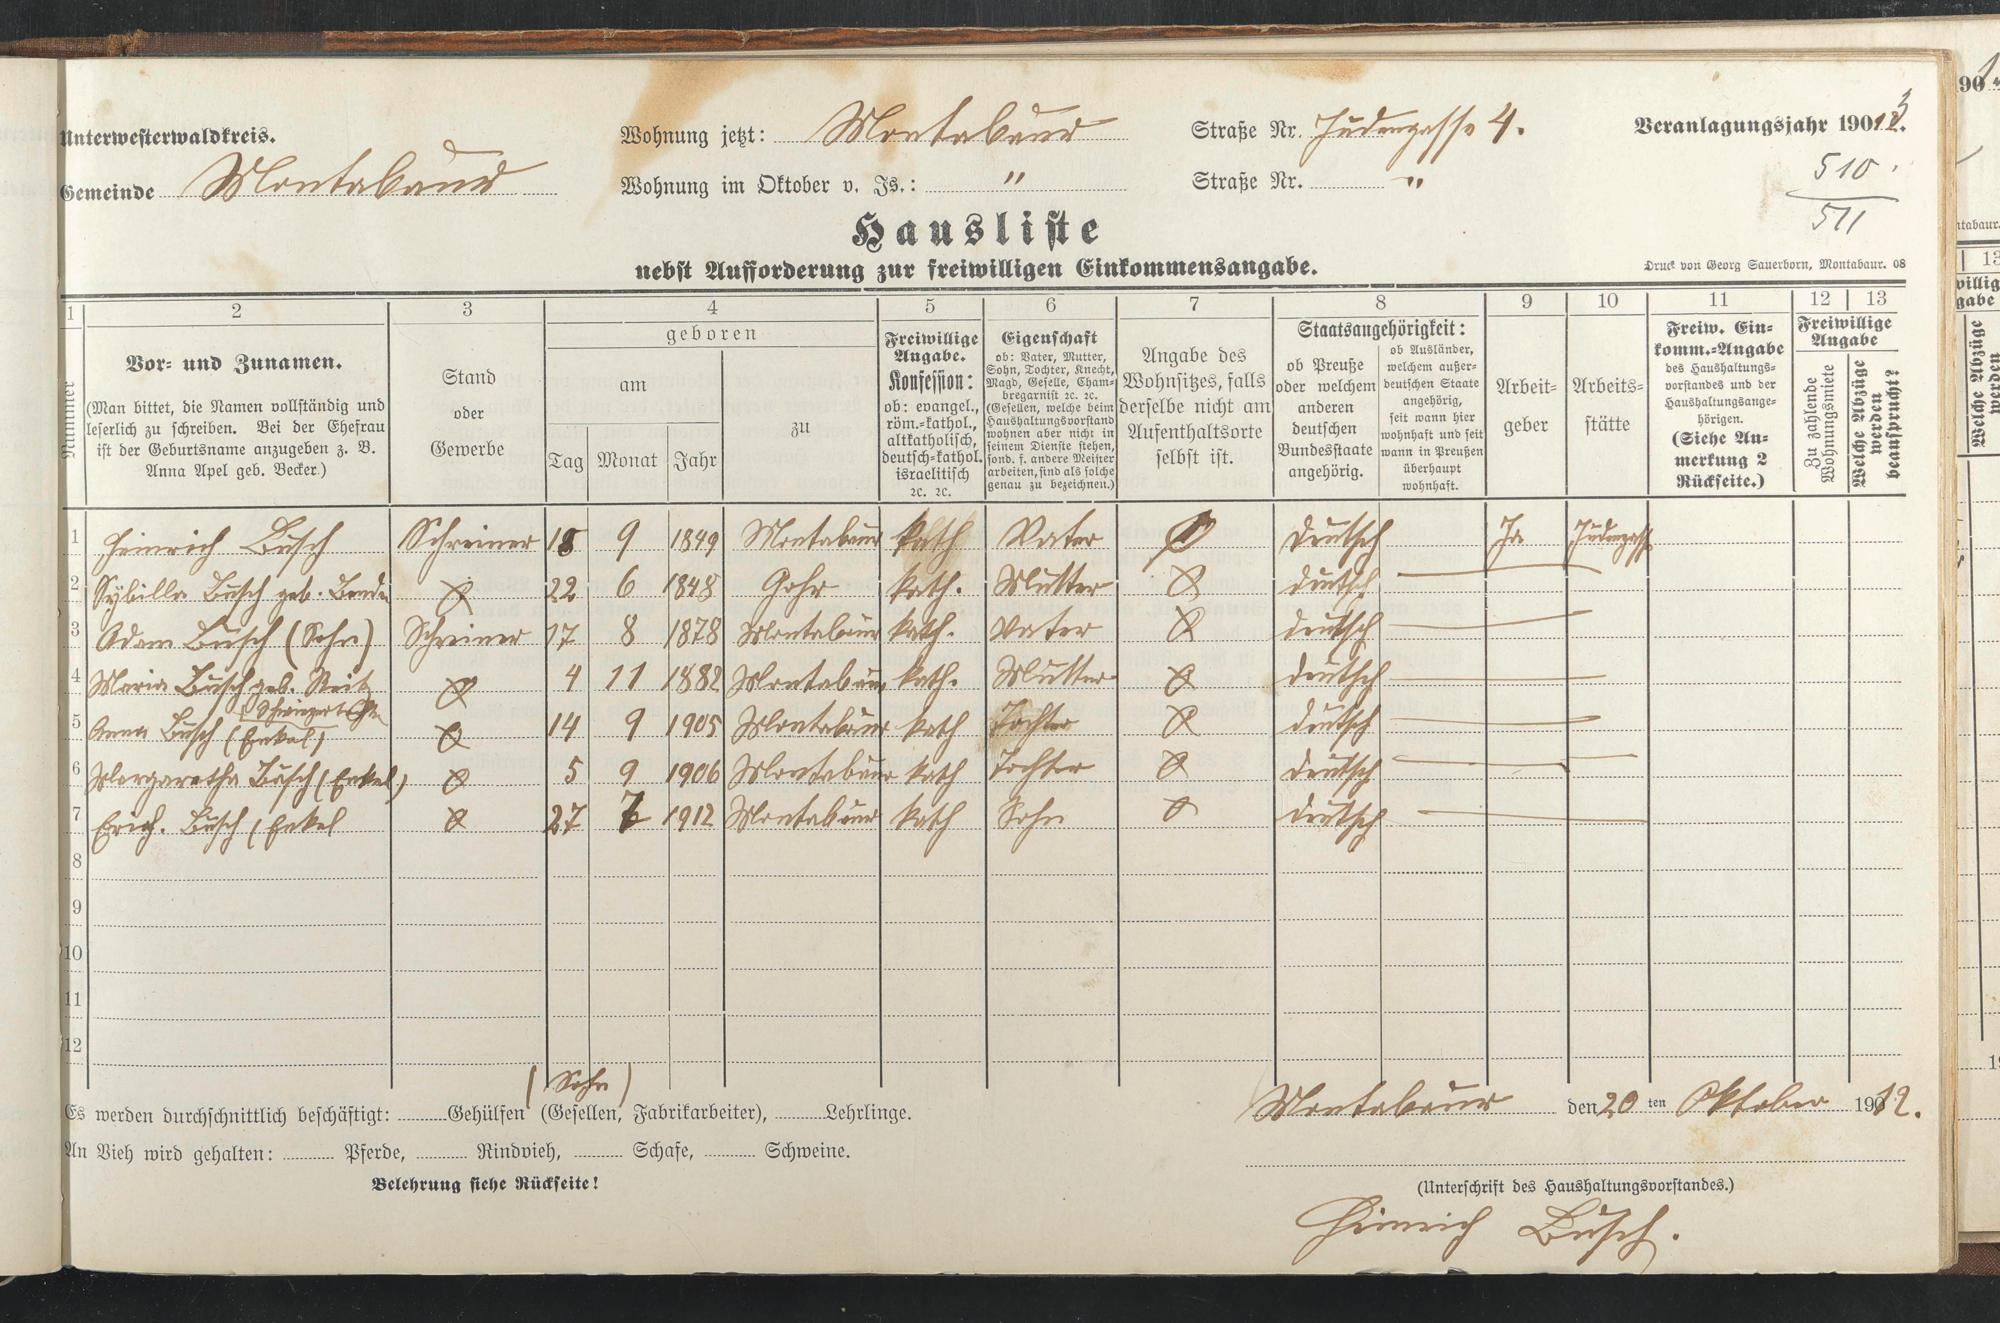 Unterwesterwaldkreis.
Gemeinde Montabaur
Wohnung jetzt: Montabaur Straße Nr. Judengasse 4.
Wohnung im Oktober v. Js.: " Straße Nr. "
Veranlagungsjahr 1913.
510
511
Hausliste
nebst Aufforderung zur freiwilligen Einkommensangabe.
Druck von Georg Sauerborn, Montabaur. 08
1 2 3 4 5 6 7 8 9 10 11 12 13
Nummer
Vor- und Zunamen.
(Man bittet, die Namen vollständig und
leserlich zu schreiben. Bei der Ehefrau
ist der Geburtsname anzugeben z. B.
Anna Apel geb. Becker.)
Stand
oder
Gewerbe
geboren
am
Tag Monat Jahr
zu
Freiwillige
Angabe.
Konfession:
ob: evangel.,
röm.-kathol.,
altkatholisch,
deutsch-kathol.
israelitisch
2c. 2c.
Eigenschaft
ob: Vater, Mutter,
Sohn, Tochter, Knecht,
Magd, Geselle, Cham-
bregarnist 2c. 2c.
(Gesellen, welche beim
Haushaltungsvorstand
wohnen aber nicht in
seinem Dienste stehen,
sond. f. andere Meister
arbeiten, sind als solche
genau zu bezeichnen.)
Angabe des
Wohnsitzes, falls
derselbe nicht am
Aufenthaltsorte
selbst ist.
Staatsangehörigkeit:
ob Preuße
oder welchem
anderen
deutschen
Bundesstaate
angehörig.
ob Ausländer,
welchem außer-
deutschen Staate
angehörig,
seit wann hier
wohnhaft und seit
wann in Preußen
überhaupt
wohnhaft.
Arbeit-
geber
Arbeits-
stätte
Freiw. Ein-
komm.-Angabe
des Haushaltungs-
vorstandes und der
Haushaltungsange-
hörigen.
(Siehe An-
merkung 2
Rückseite.)
Freiwillige
Angabe
Zu zahlende
Wohnungsmiete
Welche Abzüge
werden
beansprucht?
1 Heinrich Busch Schreiner 18 9 1849 Montabaur kath Vater deutsch Ja Judengasse
2 Sybilla Busch geb. 22 6 1848 Gohr kath. Mutter deutsch
3 Adam Busch (Sohn) Schreiner 17 8 1878 Montabaur kath. Vater deutsch
4 Maria Busch geb. 4 11 1882 Montabaur kath. Mutter deutsch
5 Anna Busch (Enkel) 14 9 1905 Montabaur kath Tochter deutsch
6 Margaretha Busch (Enkel) 5 9 1906 Montabaur kath Tochter deutsch
7 Erich. Busch (Enkel 27 7 1912 Montabaur kath Sohn deutsch
8
9
10
11
12
(Sohn)
Es werden durchschnittlich beschäftigt: Gehülfen (Gesellen, Fabrikarbeiter), Lehrlinge.
An Vieh wird gehalten: Pferde, Rindvieh, Schafe, Schweine.
Belehrung siehe Rückseite!
Montabaur den 20 ten Oktober 1912.
(Unterschrift des Haushaltungsvorstandes.)
Heinrich Busch.